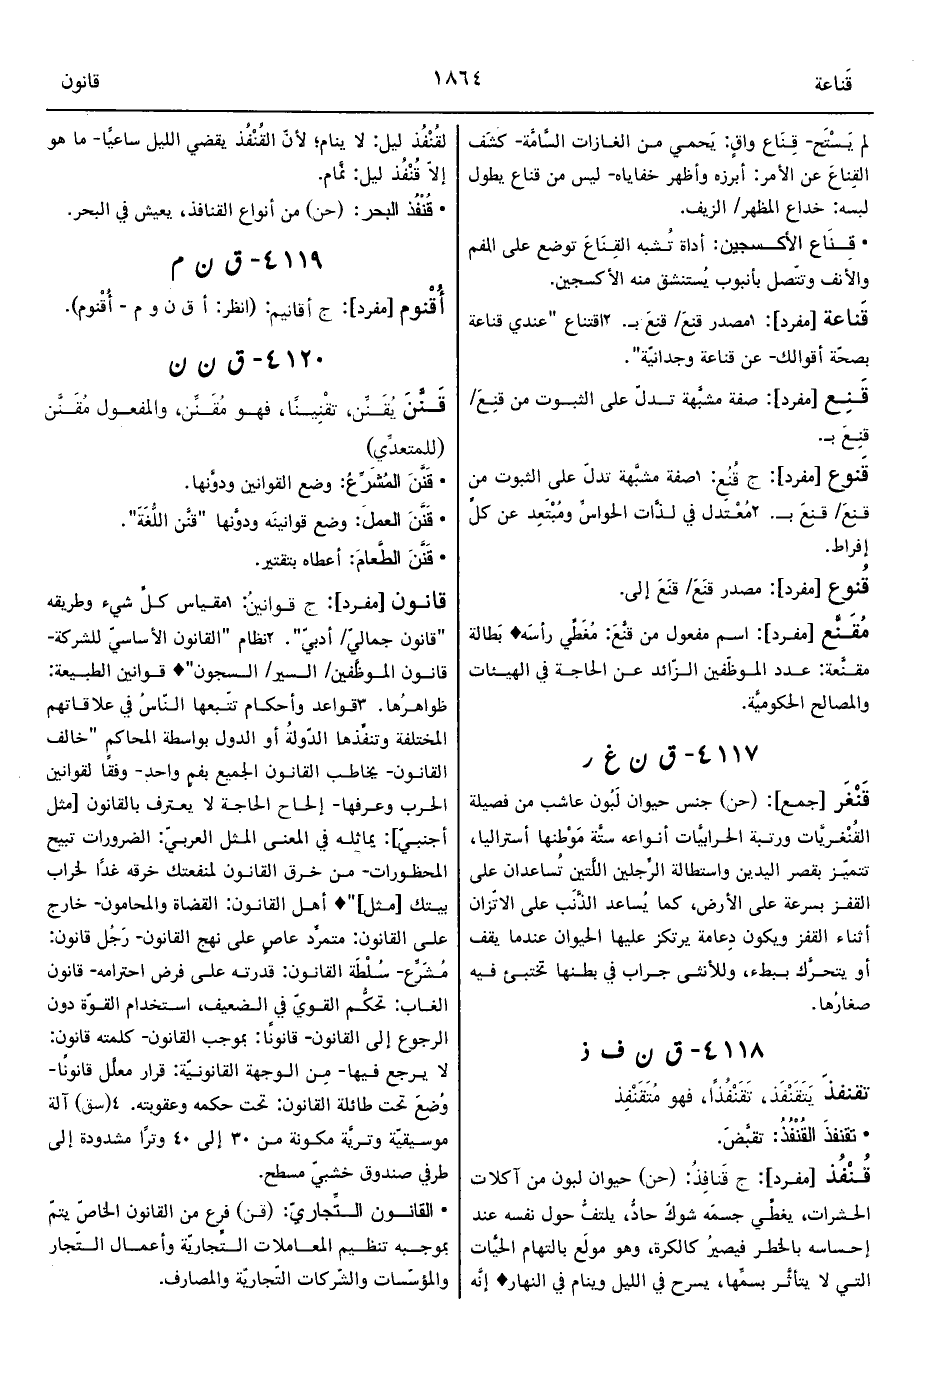 قَناعة
١٨٦٤
قانون
لم يَسْتَحِ- قِناع واقٍ: يَحمي من الغازات السَّامَّة- كشَف
القِناعَ عن الأمر: أبرزه وأظهر خفاياه- ليس من قناع يطول
لبسه: خداع المظهر/ الزيف.
• قِناع الأكسجين: أداة تُشبه القِناعَ توضع على الفم
والأنف وتتّصل بأنبوب يُستنشق منه الأكسجين.
قَناعة [مفرد]: ١مصدر قنَعَ/ قنِعَ بـ. ٢اقتناع "عندي قناعة
بصحّة أقوالك- عن قناعة وجدانيّة".
قَنِع [مفرد]: صفة مشبَّهة تدلّ على الثبوت من قنِعَ/
قنِعَ بـ.
قَنوع [مفرد]: ج قُنُع: ١صفة مشبَّهة تدلّ على الثبوت من
قنِعَ/ قنِعَ بـ. ٢مُعْتَدل في لذَّات الحواسّ ومُبْتَعِد عن كلِّ
إفراط.
قُنوع [مفرد]: مصدر قنَعَ/ قنَعَ إلى.
مُقَنَّع [مفرد]: اسم مفعول من قنَّعَ: مُغَطِّي رأسَه♦ بَطالة
مقنَّعة: عدد الموظّفين الزّائد عن الحاجة في الهيئات
والمصالح الحكوميَّة.
٤١١٧- ق ن غ ر
قَنْغَر [جمع]: (حن) جنس حيوان لَبُون عاشب من فصيلة
القُنْغريَّات ورتبة الجرابيَّات أنواعه ستَّة مَوْطنها أستراليا،
تتميّز بقصر اليدين واستطالة الرِّجلين اللَّتين تُساعدان على
القفز بسرعة على الأرض، كما يُساعد الذَّنَب على الاتّزان
أثناء القفز ويكون دِعامة يرتكز عليها الحيوان عندما يقف
أو يتحرَّك ببطء، وللأنثى جراب في بطنها تختبئ فيه
صغارُها.
٤١١٨- ق ن ف ذ
تقنفذَ يَتَقَنْفَذ، تَقَنْفُذًا، فهو مُتَقَنْفِذ
• تقنفذَ القُنْفُذُ: تقبَّضَ.
قُنْفُذ [مفرد]: ج قَنافِذُ: (حن) حيوان لبون من آكلات
الحشرات، يغطِّي جسمَه شوكٌ حادٌّ، يلتفُّ حول نفسه عند
إحساسه بالخطر فيصيرُ كالكرة، وهو مولَع بالتهام الحيَّات
التي لا يتأثَّر بسمِّها، يسرح في الليل وينام في النهار♦ إنَّه
لقُنْفُذ ليل: لا ينام؛ لأنّ القُنْفُذ يقضي الليل ساعيًا- ما هو
إلاّ قُنْفُذ ليل: نمَّام.
• قُنْفُذ البحر: (حن) من أنواع القنافذ، يعيش في البحر.
٤١١٩- ق ن م
أُقْنوم [مفرد]: ج أقانيم: (انظر: أ ق ن و م - أُقْنوم).
٤١٢٠- ق ن ن
قَنَّنَ يُقَنِّن، تقْنِينًا، فهو مُقَنِّن، والمفعول مُقَنَّن
(للمتعدِّي)
• قنَّنَ المُشَرِّعُ: وضع القوانين ودوَّنها.
• قنَّنَ العملَ: وضع قوانينَه ودوَّنها "قنَّن اللُّغةَ".
• قنَّنَ الطَّعامَ: أعطاه بتقتير.
قانون [مفرد]: ج قوانينُ: ١مقياس كلِّ شيء وطريقه
"قانون جماليّ/ أدبيّ". ٢نظام "القانون الأساسيّ للشركة-
قانون الموظّفين/ السير/ السجون"♦ قوانين الطبيعة:
ظواهرُها. ٣قواعد وأحكام تتّبعها النّاسُ في علاقاتهم
المختلفة وتنفّذها الدّولةُ أو الدول بواسطة المحاكم "خالف
القانون- يخاطب القانون الجميع بفم واحد- وفقًا لقوانين
الحرب وعرفها- إلحاح الحاجة لا يعترف بالقانون [مثل
أجنبيّ]: يماثله في المعنى المثل العربيّ: الضرورات تبيح
المحظورات- من خرق القانون لمنفعتك خرقه غدًا لخراب
بيتك [مثل]"♦ أهل القانون: القضاة والمحامون- خارج
على القانون: متمرِّد عاصٍ على نهج القانون- رَجُل قانون:
مُشَرِّع- سُلْطَة القانون: قدرته على فرض احترامه- قانون
الغاب: تحكُّم القويّ في الضعيف، استخدام القوّة دون
الرجوع إلى القانون- قانونًا: بموجب القانون- كلمته قانون:
لا يرجع فيها- مِن الوجهة القانونيّة: قرار معلَّل قانونًا-
وُضعَ تحت طائلة القانون: تحت حكمه وعقوبته. ٤(سق) آلة
موسيقيّة وتريَّة مكونة من ٣٠ إلى ٤٠ وترًا مشدودة إلى
طرفي صندوق خشبيّ مسطح.
• القانون التِّجاريّ: (قن) فرع من القانون الخاصّ يتمّ
بموجبه تنظيم المعاملات التِّجاريّة وأعمال التّجار
والمؤسّسات والشّركات التّجاريّة والمصارف.